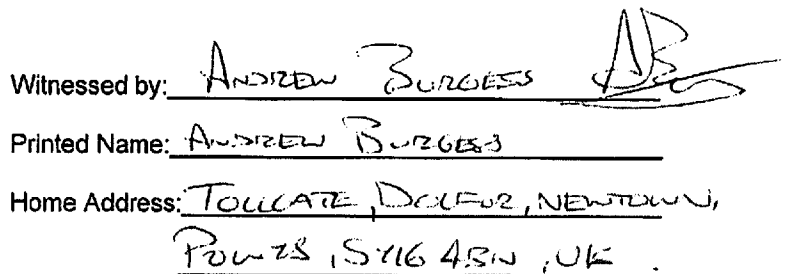 Witnessed by: ANDREW BURGESS
Printed Name: ANDREW BURGESS
Home Address: TOLLGATE, DOLFOR, NEWTOWN,
POWYS, SY16 4BN, UK.